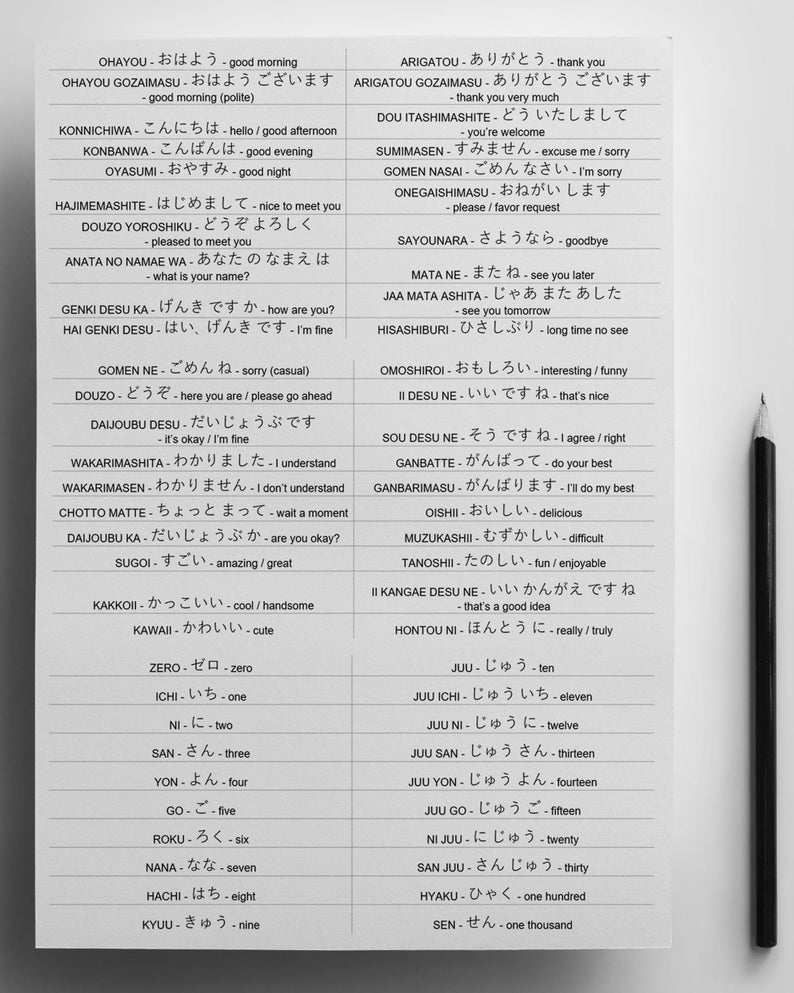 OHAYOU - おはよう - good morning
OHAYOU GOZAIMASU - おはよう ございます
- good morning (polite)
KONNICHIWA - こんにちは - hello / good afternoon
KONBANWA - こんばんは - good evening
OYASUMI - おやすみ - good night
HAJIMEMASHITE - はじめまして - nice to meet you
DOUZO YOROSHIKU - どうぞ よろしく
- pleased to meet you
ANATA NO NAMAE WA - あなた の なまえ は
- what is your name?
GENKI DESU KA - げんき です か - how are you?
HAI GENKI DESU - はい、げんき です - I'm fine
ARIGATOU - ありがとう - thank you
ARIGATOU GOZAIMASU - ありがとう ございます
- thank you very much
DOU ITASHIMASHITE - どう いたしまして
- you're welcome
SUMIMASEN - すみません - excuse me / sorry
GOMEN NASAI - ごめん なさい - I'm sorry
ONEGAISHIMASU - おねがい します
- please / favor request
SAYOUNARA - さようなら - goodbye
MATA NE - また ね - see you later
JAA MATA ASHITA - じゃあ また あした
- see you tomorrow
HISASHIBURI - ひさしぶり - long time no see
GOMEN NE - ごめん ね - sorry (casual)
DOUZO - どうぞ - here you are / please go ahead
DAIJOUBU DESU - だいじょうぶ です
- it's okay / I'm fine
WAKARIMASHITA - わかりました - I understand
WAKARIMASEN - わかりません - I don't understand
CHOTTO MATTE - ちょっと まって - wait a moment
DAIJOUBU KA - だいじょうぶ か - are you okay?
SUGOI - すごい - amazing / great
KAKKOII - かっこいい - cool / handsome
KAWAII - かわいい - cute
OMOSHIROI - おもしろい - interesting / funny
II DESU NE - いい です ね - that's nice
SOU DESU NE - そう です ね - I agree / right
GANBATTE - がんばって - do your best
GANBARIMASU - がんばります - I'll do my best
OISHII - おいしい - delicious
MUZUKASHII - むずかしい - difficult
TANOSHII - たのしい - fun / enjoyable
II KANGAE DESU NE - いい かんがえ です ね
- that's a good idea
HONTOU NI - ほんとう に - really / truly
ZERO - ゼロ - zero
ICHI - いち - one
NI - に - two
SAN - さん - three
YON - よん - four
GO - ご - five
ROKU - ろく - six
NANA - なな - seven
HACHI - はち - eight
KYUU - きゅう - nine
JUU - じゅう - ten
JUU ICHI - じゅう いち - eleven
JUU NI - じゅう に - twelve
JUU SAN - じゅう さん - thirteen
JUU YON - じゅう よん - fourteen
JUU GO - じゅう ご - fifteen
NI JUU - に じゅう - twenty
SAN JUU - さん じゅう - thirty
HYAKU - ひゃく - one hundred
SEN - せん - one thousand